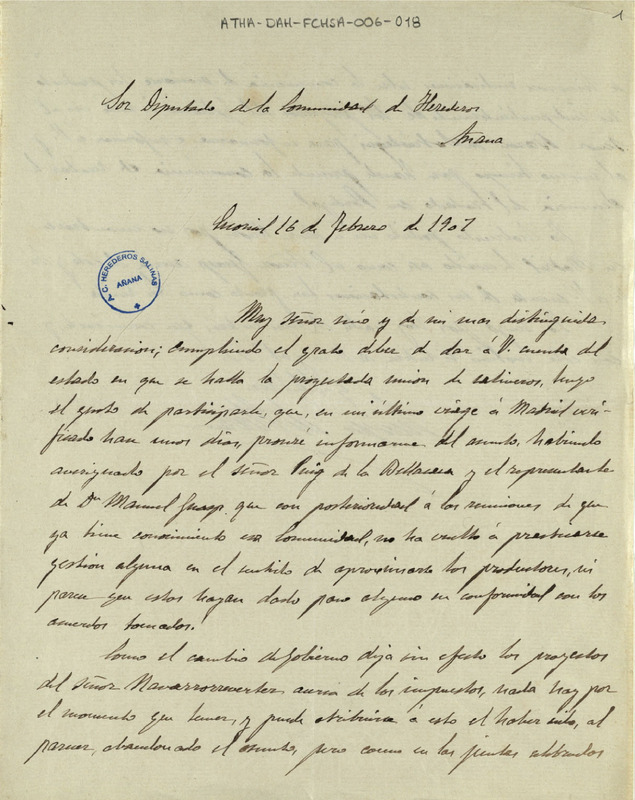 ATHA-DAH-FCHSA-006-018
1
Sor Diputado de la Comunidad de Herederos
Añana
Escorial 16 de febrero de 1907
P. C. HEREDEROS SALINAS
AÑANA
Muy señor mio y de mi mas distinguida
consideracion; cumpliendo el grato deber de dar á V. cuenta del
estado en que se halla la proyectada union de salineros, tengo
el gusto de participarle, que, en mi último viage á Madrid veri-
ficado hace unos dias, procuré informarme del asunto, habiendo
averiguado por el señor Puig de la Bellacasa y el representante
de Dn Manuel Guasp. que con posterioridad á las reuniones de que
ya tiene conocimiento esa Comunidad, no ha vuelto á practicarse
gestion alguna en el sentido de aproximarse los productores, ni
parece que estos hayan dado paso alguno en conformidad con los
acuerdos tomados.
Como el cambio de Gobierno deja sin efecto los proyectos
del señor Navarrorreverter acerca de los impuestos, nada hay por
el momento que temer, y puede atribuirse á esto el haber sido, al
parecer, abandonado el asunto, pero como en las juntas celebradas